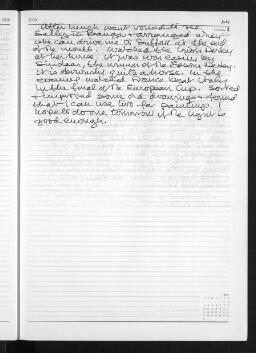 July
After lunch went round to see
Sally in Bangor + arranged a day
she can drive me to Suffolk at the end
of the month. Watched the Irish Derby
at her house. It was won easily by
Sindaar, the winner of the Epsom Derby.
It is obviously quite a horse. In the
evening watched France beat Italy
in the final of the European Cup. Sorted
+ improved some old drawings + found
that I can use two for paintings. I
hope to do one tomorrow if the light is
good enough.